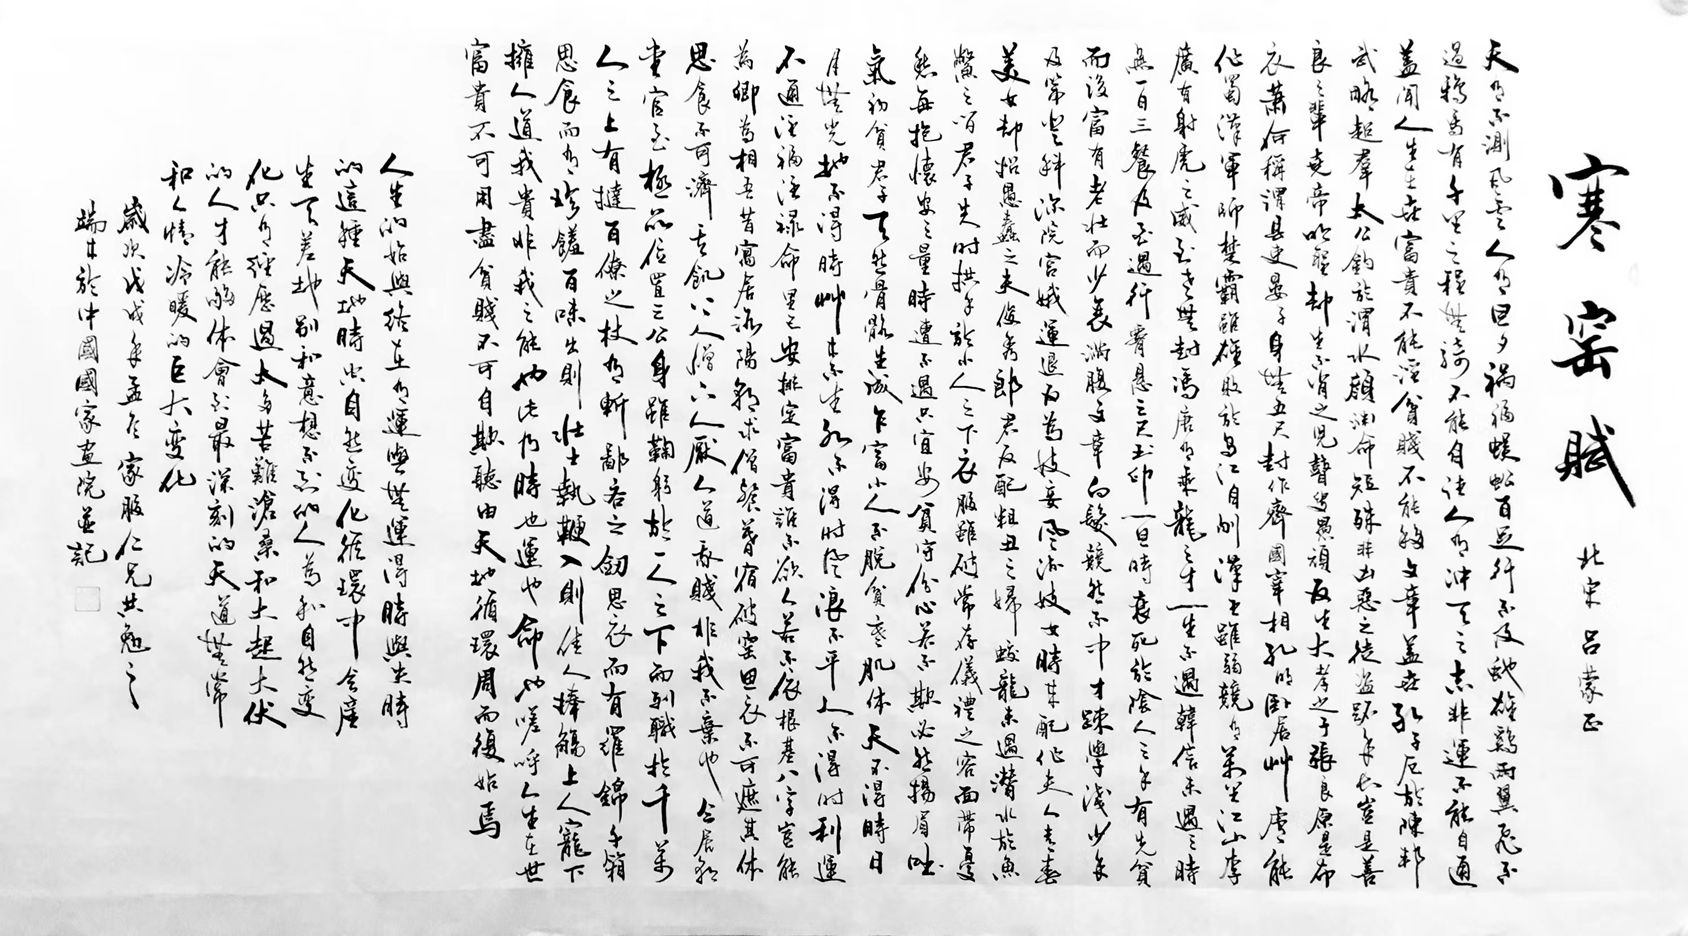 寒窑赋
北宋吕蒙正
天有不測風雲人有旦夕禍福蜈蚣百足行不及蛇雄鷄兩翼飛不
過鴉馬有千里之程無騎不能自往人有冲天之志非運不能自通
蓋聞人生在世富貴不能淫貧賤不能移文章蓋世孔子厄於陳邦
武略超羣太公釣於渭水顔淵命短殊非凶惡之徒盗跖年長豈是善
良之輩堯帝明聖却生不肖之児瞽叟愚頑反生大孝之子張良原是布
衣蕭何稱謂县吏晏子身無五尺封作齊國宰相孔明卧居艸廬能
作蜀漢軍師楚霸雖雄敗於烏江自刎漢王雖弱競有萬里江山李
廣有射虎之威到老無封馮唐有乘龍之才一生不遇韓信未遇之時
無一日三餐及至遇行腰悬三尺玉印一旦時衰死於陰人之手有先貧
而後富有老壮而少衰滿腹文章白髮競然不中才疎學淺少年
及第登科深院宮娥運退反為妓妾風流妓女時来配作夫人青春
美女却招愚蠢之夫俊秀郎君反配粗丑之婦蛟龍未遇潜水於魚
鱉之間君子失时拱手於小人之下衣服雖破常存儀禮之容面带憂
愁每抱懷安之量時遭不遇只宜安貧守份心若不欺必然揚眉吐
氣初貧君子天然骨骼生成乍富小人不脱貧寒肌体天不得時日
月無光地不得時艸木不生水不得时風浪不平人不得时利運
不通注福注禄命里已安排定富貴誰不欲人若不依根基八字豈能
為卿為相吾昔寓居洛陽朝求僧餐暮宿破窑思衣不可遮其体
思食不可濟其飢上人憎下人厭人道我賤非我不棄也今居朝
堂官至極品位置三公身雖鞠躬於一人之下而列職於千萬
人之上有撻百僚之杖有斬鄙吝之劒思衣而有羅錦千箱
思食而有珍饈百味出則壮士執鞭入則佳人捧觴上人寵下
擁人道我貴非我之能也此乃時也運也命也嗟呼人生在世
富貴不可用盡貧賤不可自欺聽由天地循環周而復始焉
人生的始與终在有運與無運得時與失時
的這種天地時空自然变化循環中会產
生天差地别和意想不到的人為和自然变
化只有經歷過太多苦難滄桑和大起大伏
的人才能够体會到最深刻的天道無常
和人情冷暖的巨大变化
歲次戊戌年孟冬家服仁兄共勉之
端木於中國國家画院並記